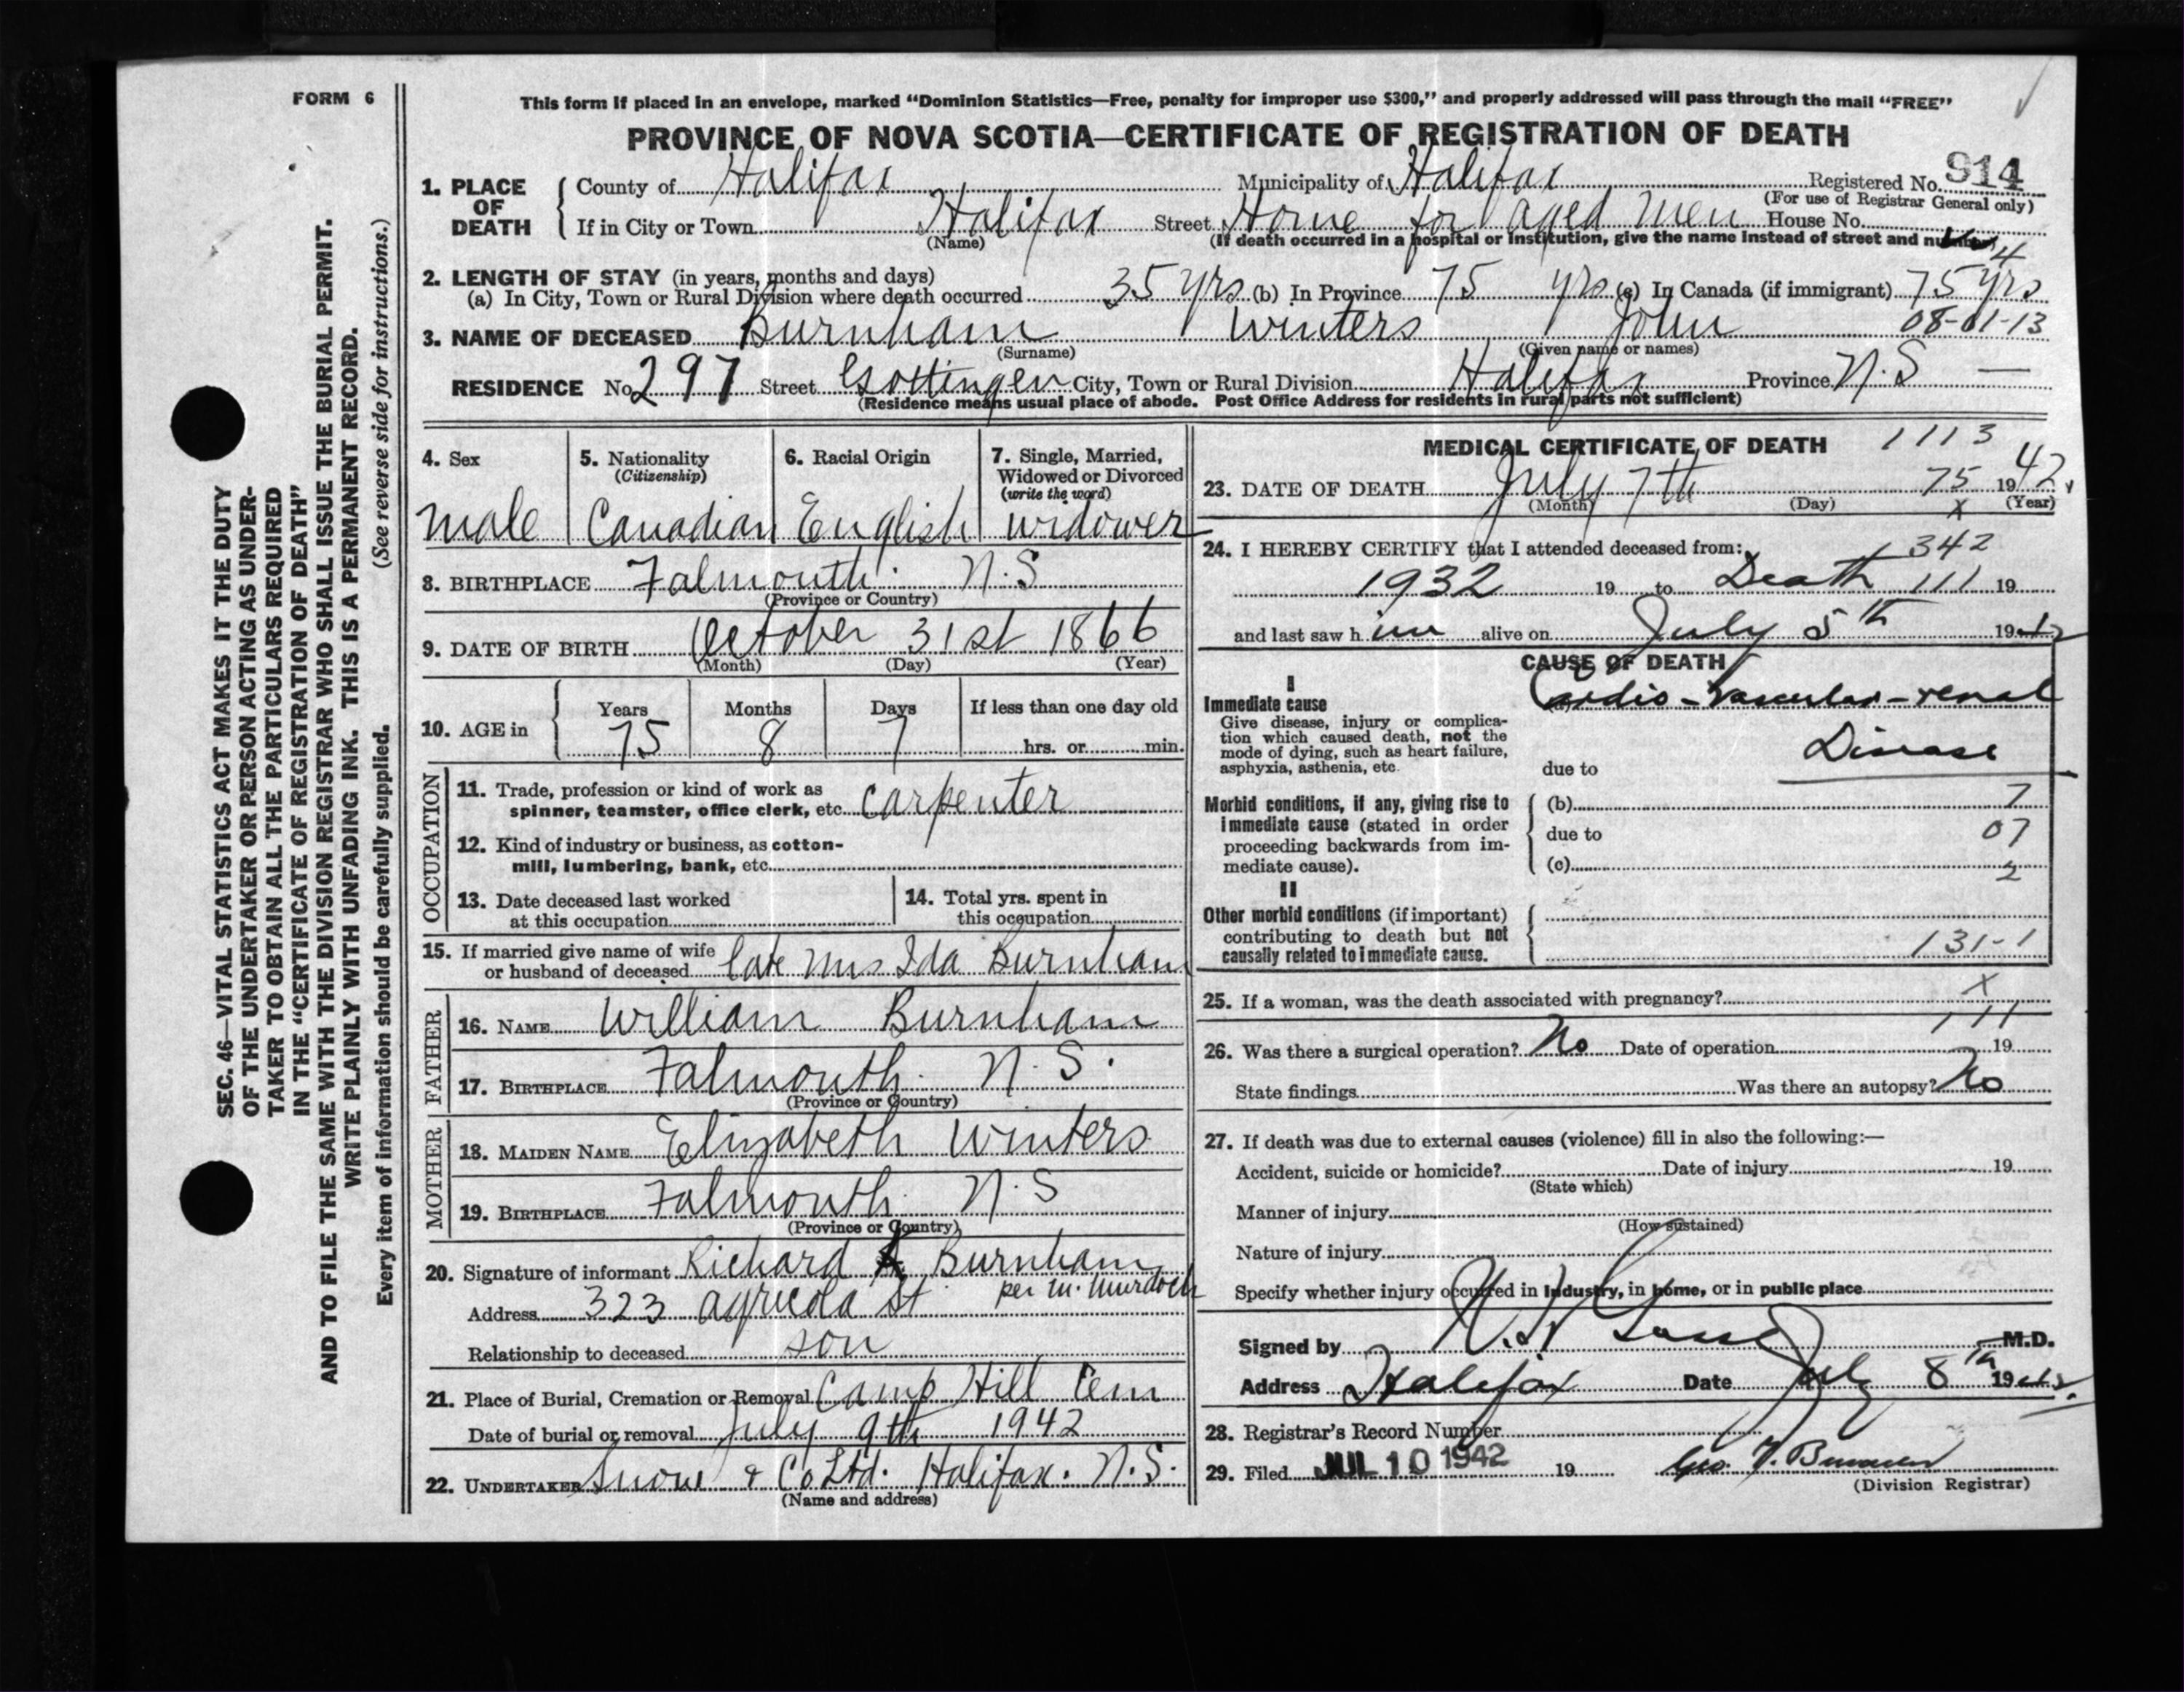 FORM 6
This form if placed in an envelope, marked “Dominion Statistics—Free, penalty for improper use $300,” and properly addressed will pass through the mail “FREE”
PROVINCE OF NOVA SCOTIA—CERTIFICATE OF REGISTRATION OF DEATH
1. PLACE OF DEATH
County of Halifax Municipality of Halifax Registered No. 914
(For use of Registrar General only)
If in City or Town Halifax Street Home for aged men House No.
(Name) (If death occurred in a hospital or institution, give the name instead of street and number)
4
2. LENGTH OF STAY (in years, months and days)
(a) In City, Town or Rural Division where death occurred 35 yrs (b) In Province 75 yrs (c) In Canada (if immigrant) 75 yrs
3. NAME OF DECEASED Burnham Winters John 08-01-13
(Surname) (Given name or names)
RESIDENCE No. 297 Street Gottingen City, Town or Rural Division Halifax Province N.S —
(Residence means usual place of abode. Post Office Address for residents in rural parts not sufficient)
4. Sex
male
5. Nationality
(Citizenship)
Canadian
6. Racial Origin
English
7. Single, Married,
Widowed or Divorced
(write the word)
widower
8. BIRTHPLACE Falmouth N.S
(Province or Country)
9. DATE OF BIRTH October 31st 1866
(Month) (Day) (Year)
10. AGE in
Years Months Days If less than one day old
75 8 7 hrs. or min.
OCCUPATION
11. Trade, profession or kind of work as
spinner, teamster, office clerk, etc. Carpenter
12. Kind of industry or business, as cotton-
mill, lumbering, bank, etc.
13. Date deceased last worked
at this occupation
14. Total yrs. spent in
this occupation
15. If married give name of wife
or husband of deceased late Mrs Ida Burnham
FATHER
16. NAME William Burnham
17. BIRTHPLACE Falmouth N.S.
(Province or Country)
MOTHER
18. MAIDEN NAME Elizabeth Winters
19. BIRTHPLACE Falmouth N.S
(Province or Country)
20. Signature of informant Richard Burnham
per M. Murdoch
Address 323 Agricola St
Relationship to deceased son
21. Place of Burial, Cremation or Removal Camp Hill Cem
Date of burial or removal July 9th 1942
22. UNDERTAKER Snow & Co Ltd. Halifax. N.S.
(Name and address)
MEDICAL CERTIFICATE OF DEATH 1113
23. DATE OF DEATH July 7th 75 1942.
(Month) (Day) x (Year)
24. I HEREBY CERTIFY that I attended deceased from: 342
1932 19 to Death 111 19
and last saw him alive on July 5th 1942
CAUSE OF DEATH
I
Immediate cause
Give disease, injury or complica-
tion which caused death, not the
mode of dying, such as heart failure,
asphyxia, asthenia, etc.
(a) Cardio-Vascular-renal
Disease
due to
Morbid conditions, if any, giving rise to
immediate cause (stated in order
proceeding backwards from im-
mediate cause).
(b) 7
due to 07
(c) 2
II
Other morbid conditions (if important)
contributing to death but not
causally related to immediate cause.
131-1
25. If a woman, was the death associated with pregnancy? x
111
26. Was there a surgical operation? No Date of operation 19
State findings Was there an autopsy? No
27. If death was due to external causes (violence) fill in also the following:—
Accident, suicide or homicide? Date of injury 19
(State which)
Manner of injury
(How sustained)
Nature of injury
Specify whether injury occurred in Industry, in home, or in public place
Signed by M.D.
Address Halifax Date July 8th 1942.
28. Registrar's Record Number
29. Filed JUL 10 1942 19
(Division Registrar)
SEC. 46—VITAL STATISTICS ACT MAKES IT THE DUTY
OF THE UNDERTAKER OR PERSON ACTING AS UNDER-
TAKER TO OBTAIN ALL THE PARTICULARS REQUIRED
IN THE “CERTIFICATE OF REGISTRATION OF DEATH”
AND TO FILE THE SAME WITH THE DIVISION REGISTRAR WHO SHALL ISSUE THE BURIAL PERMIT.
WRITE PLAINLY WITH UNFADING INK. THIS IS A PERMANENT RECORD.
Every item of information should be carefully supplied. (See reverse side for instructions.)